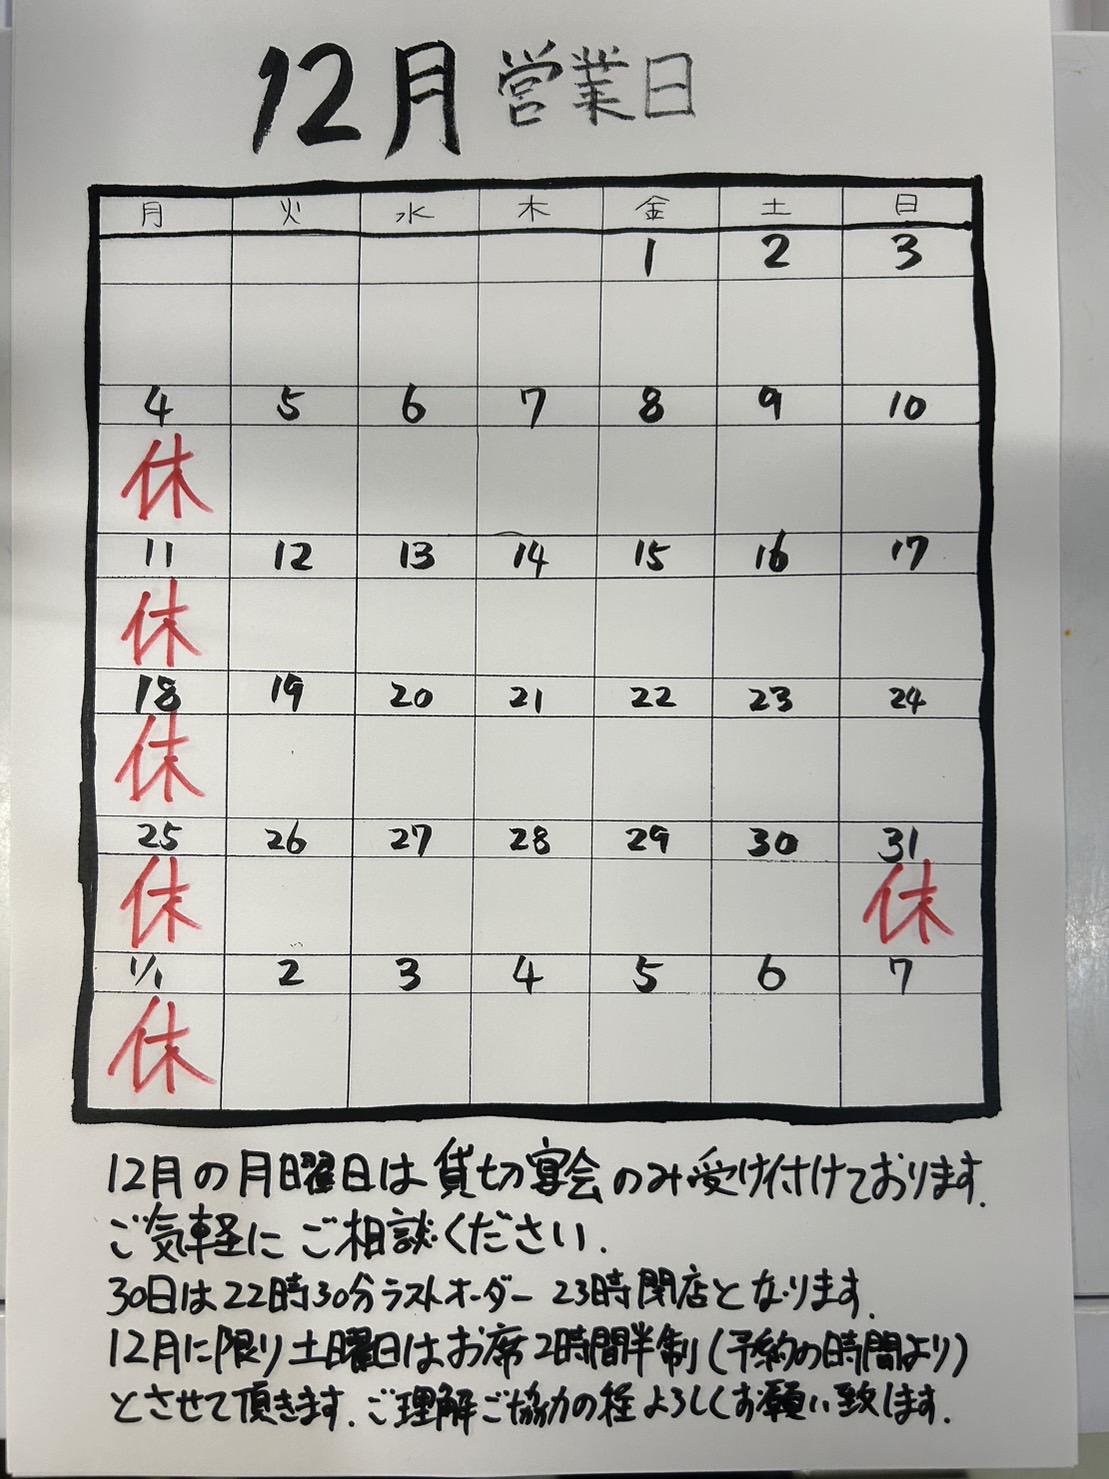 12月 営業日
月 火 水 木 金 土 日
1 2 3
4 5 6 7 8 9 10
休
11 12 13 14 15 16 17
休
18 19 20 21 22 23 24
休
25 26 27 28 29 30 31
休 休
1/1 2 3 4 5 6 7
休
12月の月曜日は貸切宴会のみ受け付けております.
ご気軽にご相談ください.
30日は22時30分ラストオーダー 23時閉店となります.
12月に限り土曜日はお席2時間半制(予約の時間より)
とさせて頂きます.ご理解ご協力の程よろしくお願い致します.